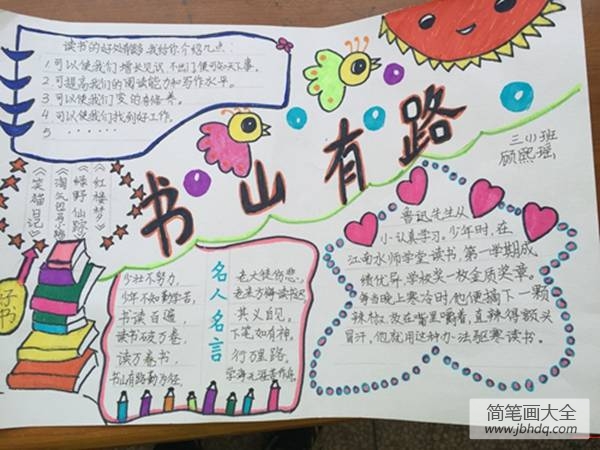 读书的好处有很多 我给你介绍几点:
1.可以使我们增长见识,不出门便可知天下事。
2.可提高我们的阅读能力和写作水平。
3.可以使我们变的有修养。
4.可以使我们找到好工作。
5 . . . . . .
书山有路
三(1)班
顾熙瑶
《红楼梦》
《绿野仙踪》
《淘气包马小跳》
《笑猫日记》
好书
名人名言
少壮不努力, 老大徒伤悲。
少年不知勤学苦, 老来方悔读书迟
书读百遍, 其义自见。
读书破万卷, 下笔如有神。
读万卷书, 行万里路。
书山有路勤为径, 学海无涯苦作舟。
鲁迅先生从
小认真学习。少年时,在
江南水师学堂读书,第一学期成
绩优异,学校奖一枚金质奖章。
每当晚上寒冷时,他便摘下一颗
辣椒,放在嘴里嚼着,直辣得额头
冒汗。他就用这种办法驱寒读书。
简笔画大全
www.jbhdq.com